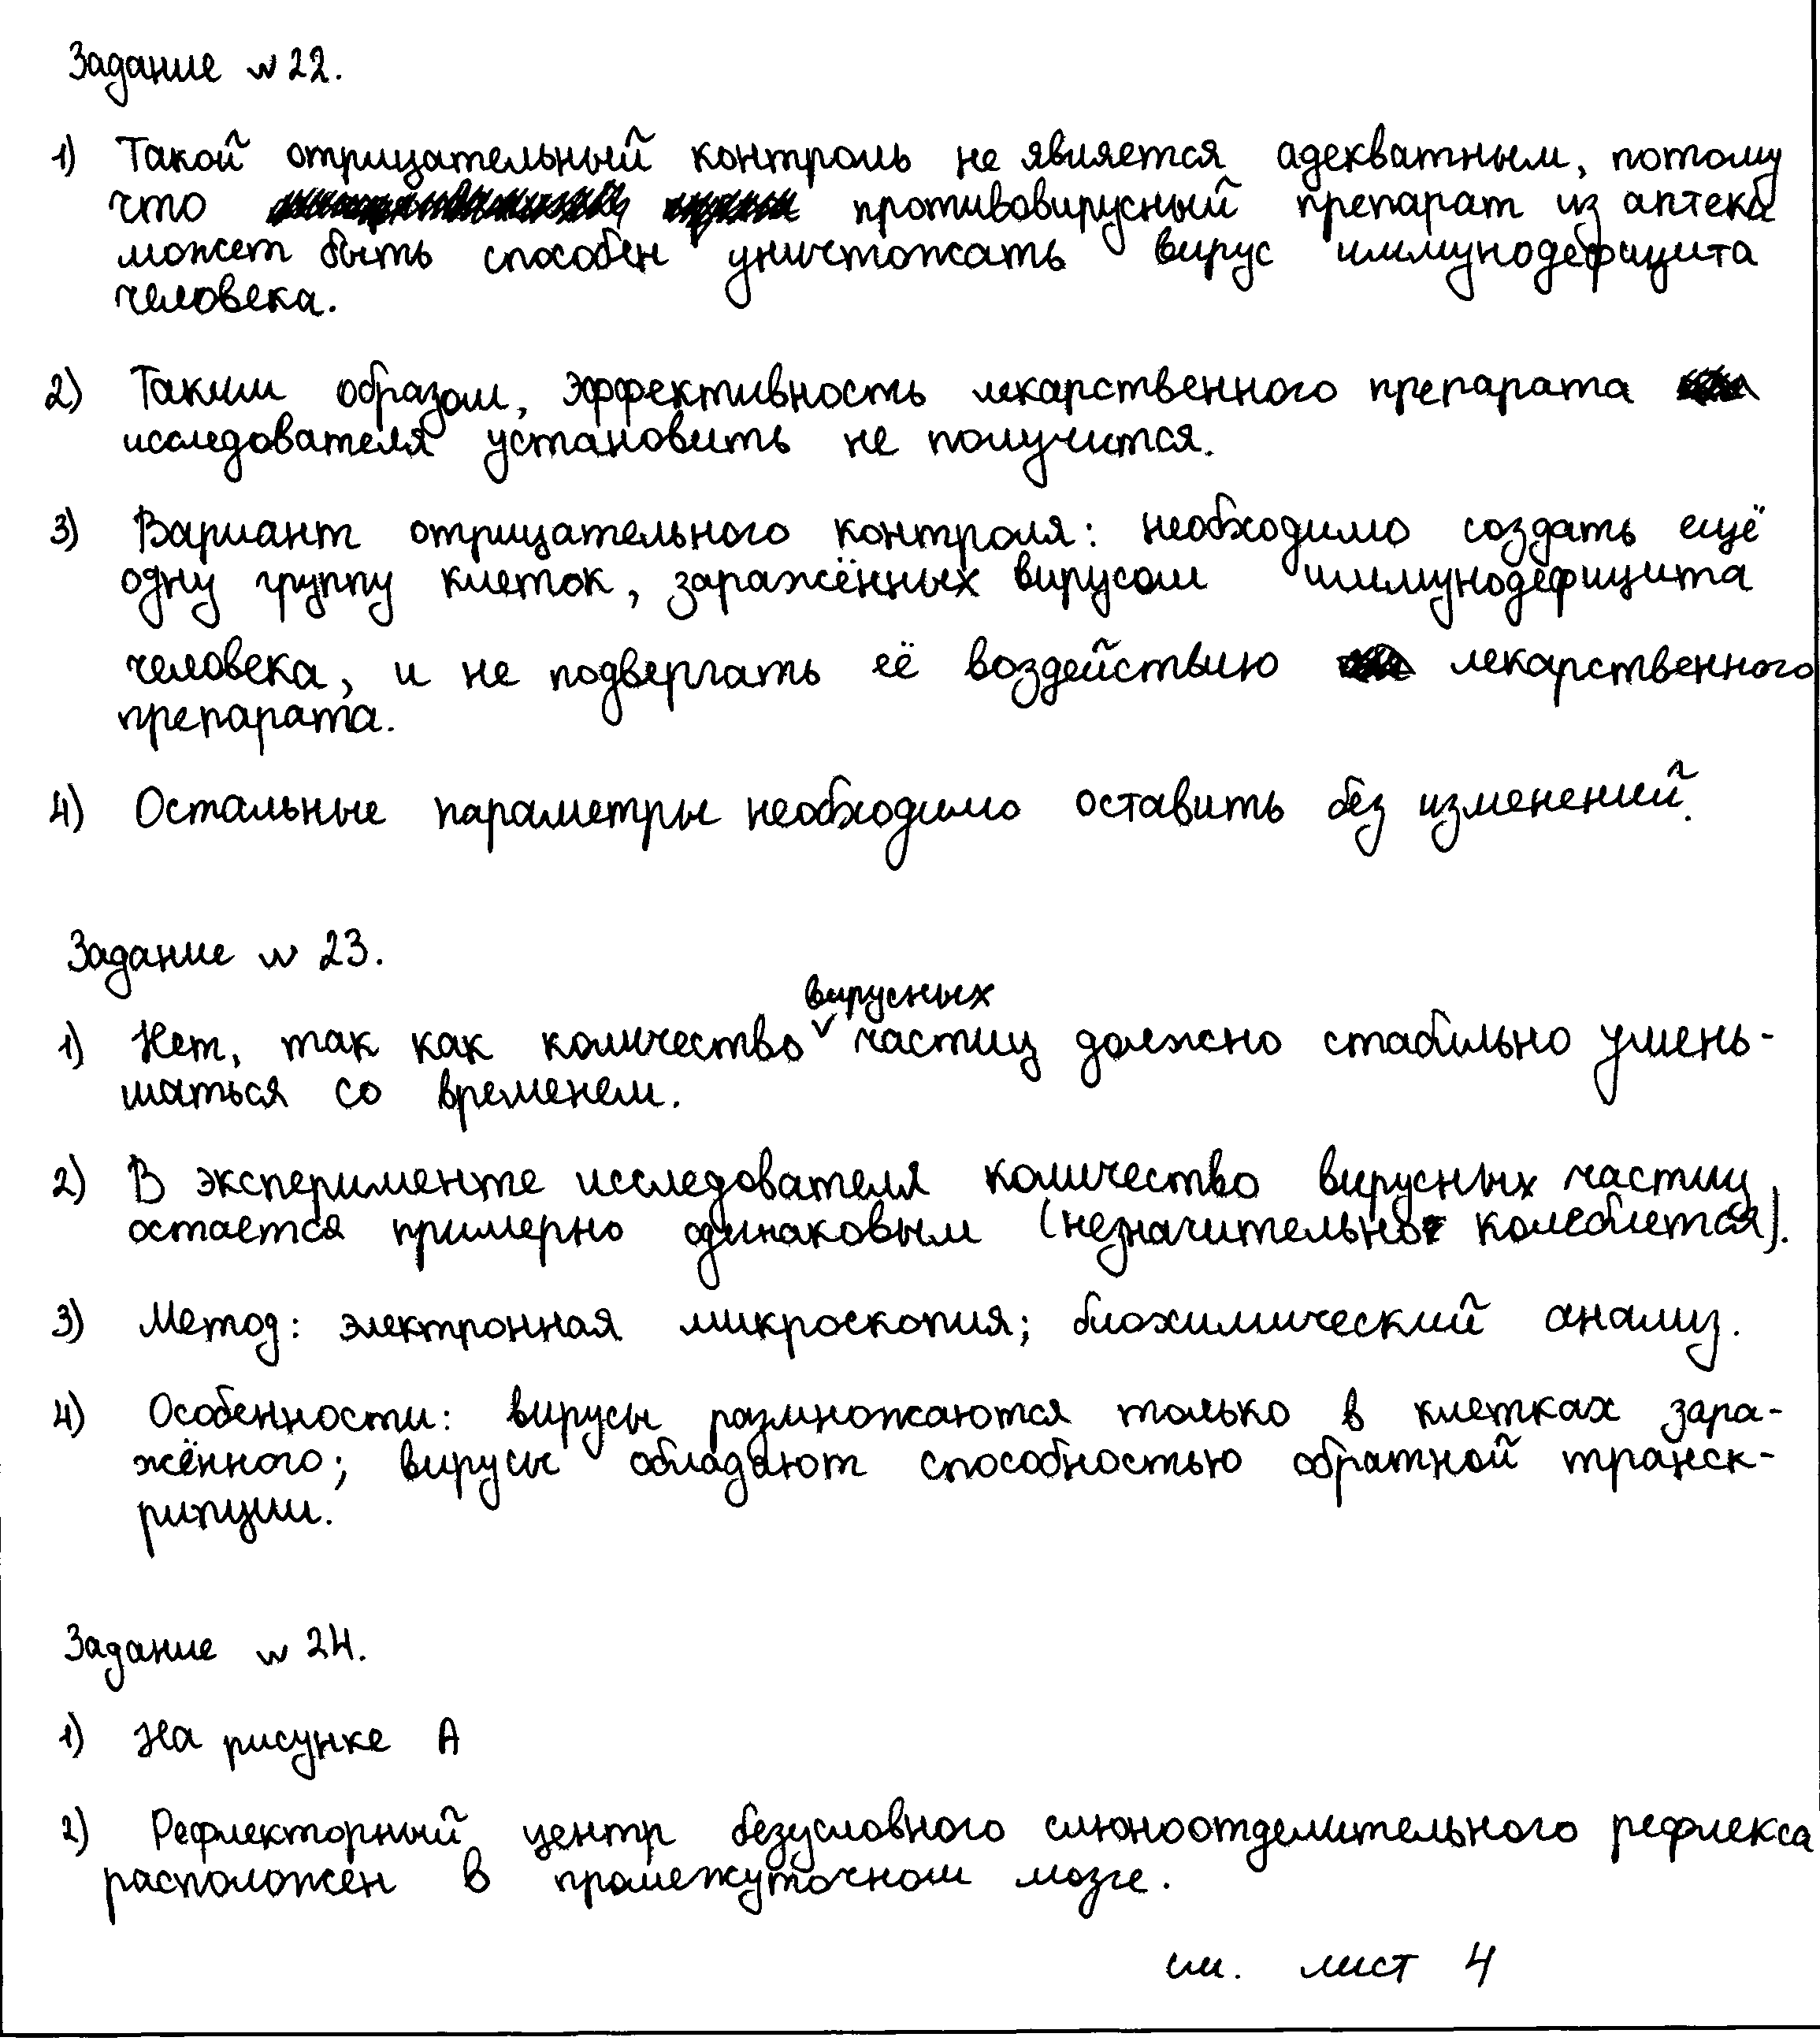 Задание № 22.
1) Такой отрицательный контроль не является адекватным, потому
что противовирусный препарат из аптеки
может быть способен уничтожать вирус иммунодефицита
человека.
2) Таким образом, эффективность лекарственного препарата
исследователя установить не получится.
3) Вариант отрицательного контроля: необходимо создать ещё
одну группу клеток, заражённых вирусом иммунодефицита
человека, и не подвергать её воздействию лекарственного
препарата.
4) Остальные параметры необходимо оставить без изменений.
Задание № 23.
1) Нет, так как количество вирусных частиц должно стабильно умень-
шаться со временем.
2) В эксперименте исследователя количество вирусных частиц
остается примерно одинаковым (незначительно колеблется).
3) Метод: электронная микроскопия; биохимический анализ.
4) Особенности: вирусы размножаются только в клетках зара-
жённого; вирусы обладают способностью обратной транск-
рипции.
Задание № 24.
1) На рисунке А
2) Рефлекторный центр безусловного слюноотделительного рефлекса
расположен в промежуточном мозге.
см. лист 4